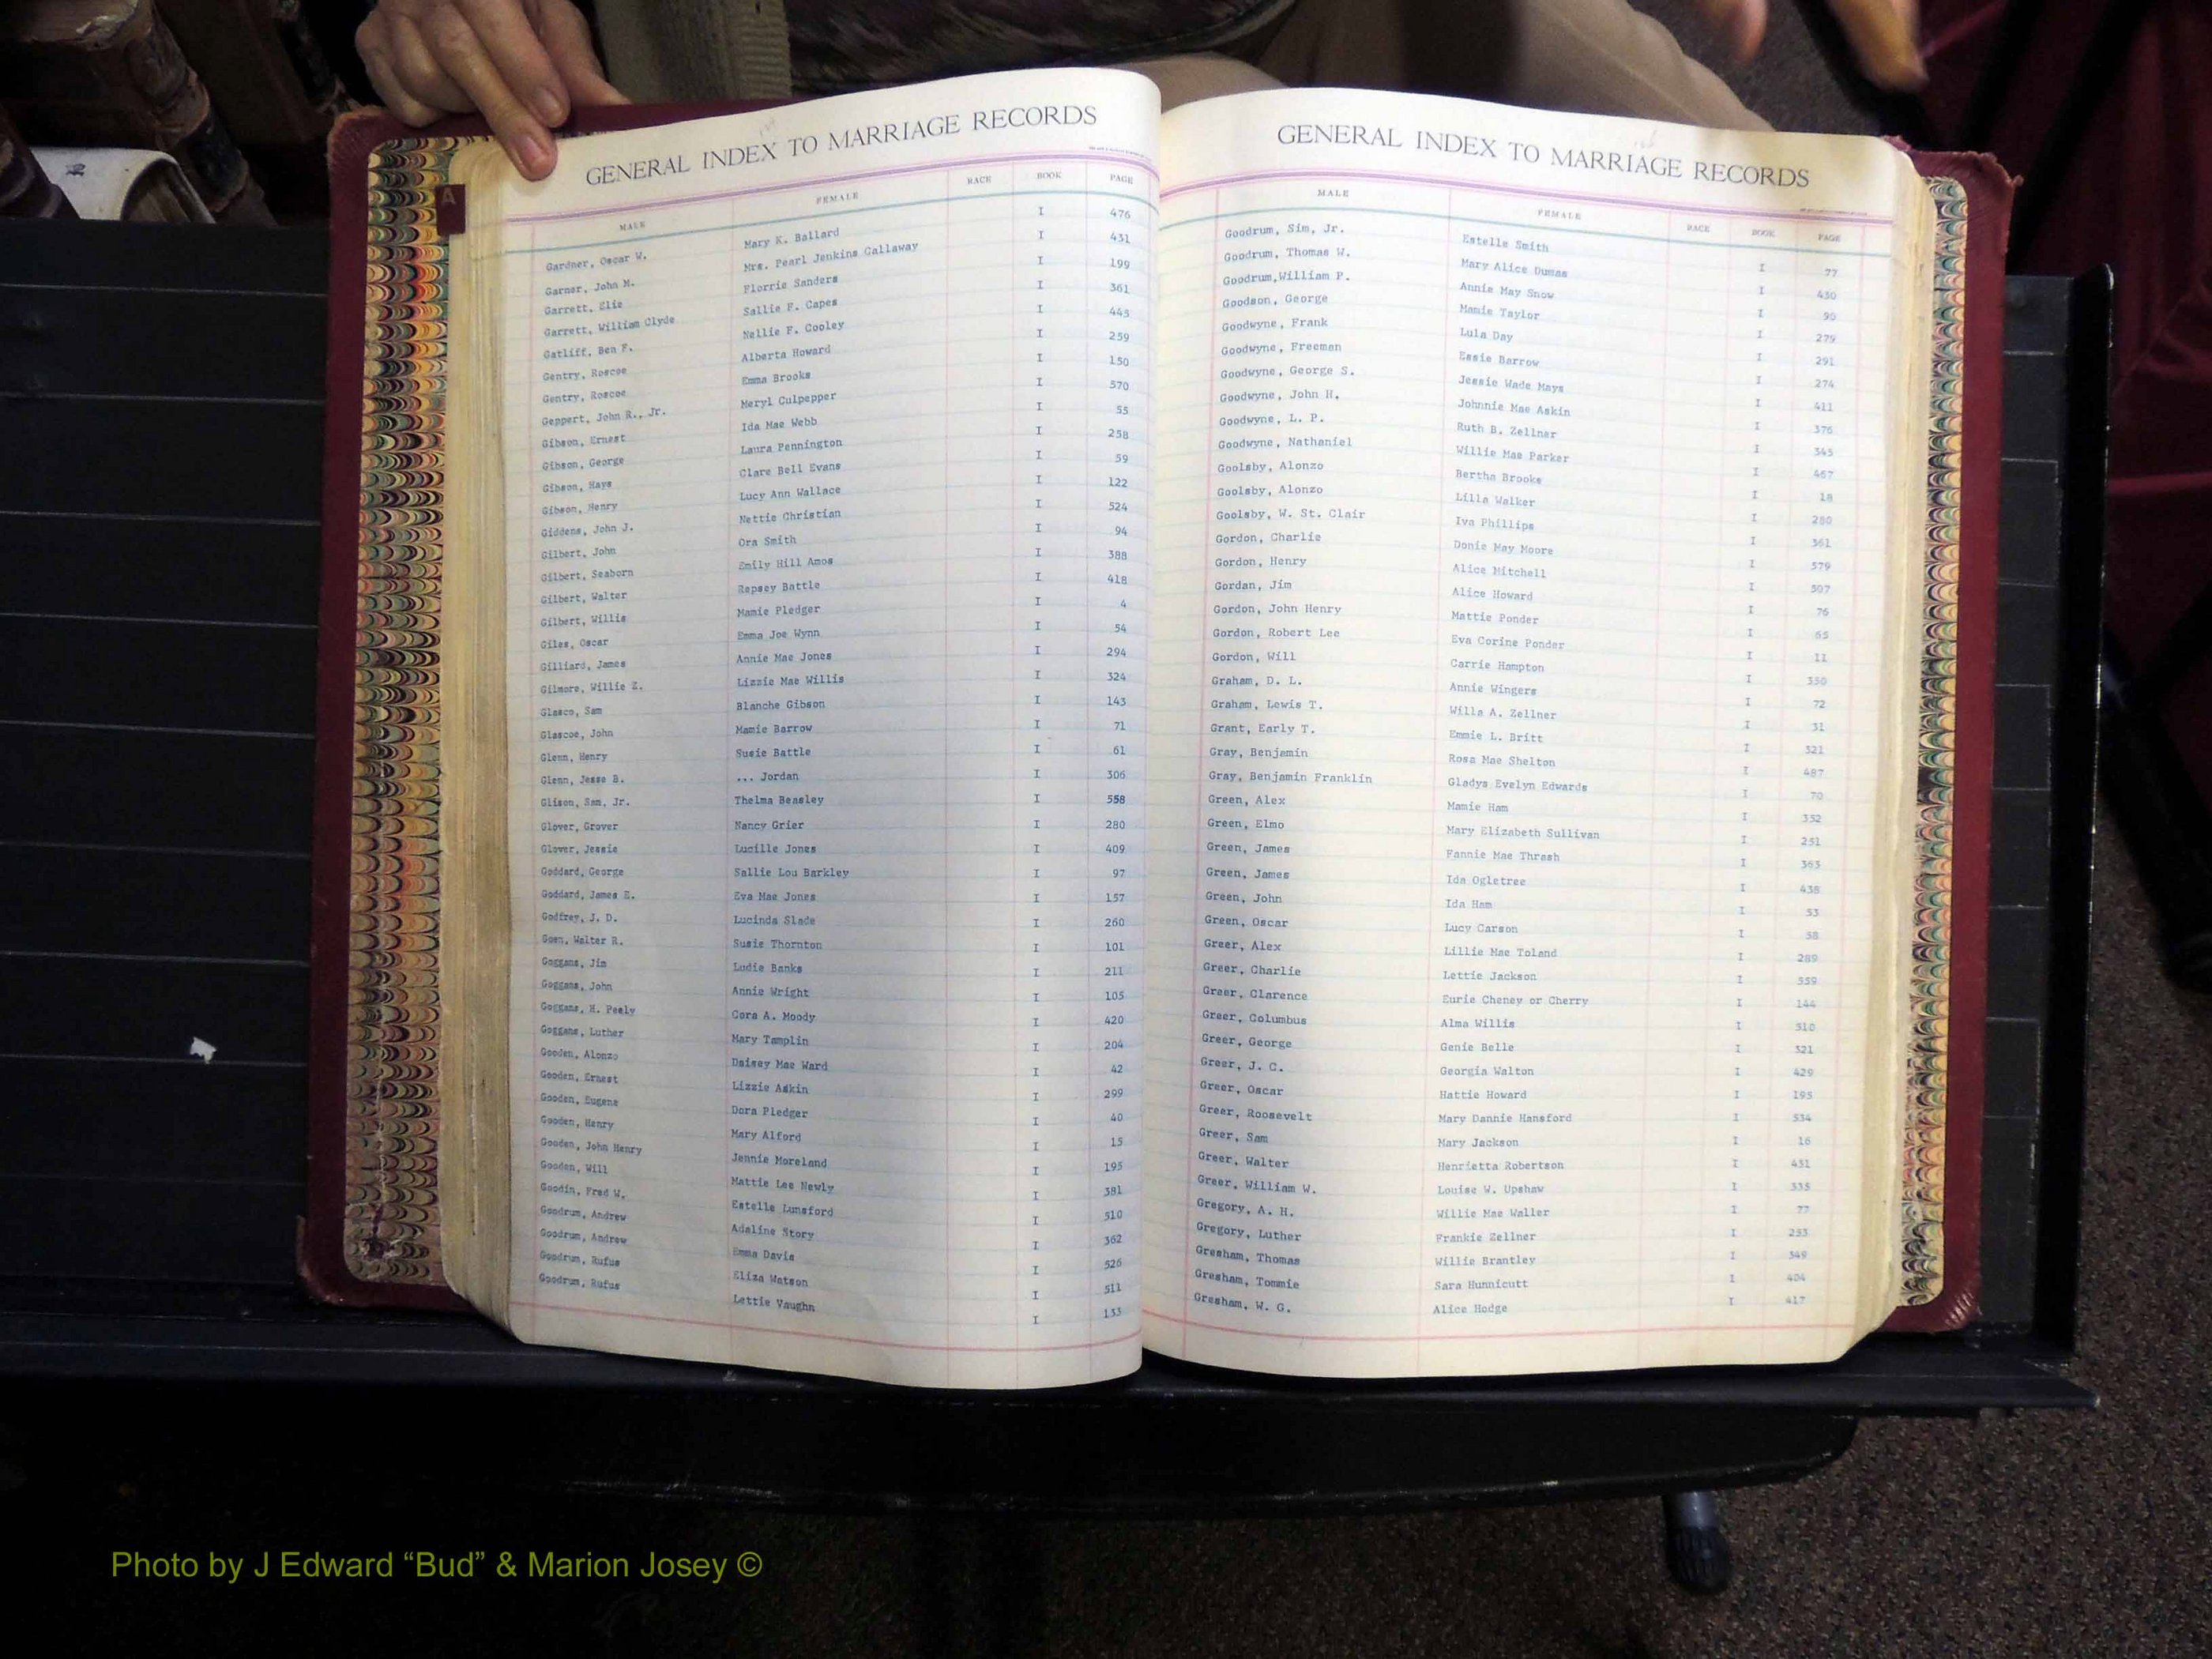 GENERAL INDEX TO MARRIAGE RECORDS
MALE FEMALE RACE BOOK PAGE
Gardner, Oscar W. Mary K. Ballard I 476
Garner, John M. Mrs. Pearl Jenkins Callaway I 431
Garrett, Elie Florrie Sanders I 199
Garrett, William Clyde Sallie F. Capes I 361
Gatliff, Ben F. Nellie F. Cooley I 445
Gentry, Roscoe Alberta Howard I 259
Gentry, Roscoe Emma Brooks I 150
Geppert, John R., Jr. Meryl Culpepper I 570
Gibson, Ernest Ida Mae Webb I 55
Gibson, George Laura Pennington I 258
Gibson, Hays Clare Bell Evans I 59
Gibson, Henry Lucy Ann Wallace I 122
Giddens, John J. Nettie Christian I 524
Gilbert, John Ora Smith I 94
Gilbert, Seaborn Emily Hill Amos I 388
Gilbert, Walter Repsey Battle I 418
Gilbert, Willis Mamie Pledger I 4
Giles, Oscar Emma Joe Wynn I 54
Gilliard, James Annie Mae Jones I 294
Gilmore, Willie Z. Lizzie Mae Willis I 324
Glasco, Sam Blanche Gibson I 143
Glascoe, John Mamie Barrow I 71
Glenn, Henry Susie Battle I 61
Glenn, Jesse B. ... Jordan I 306
Glison, Sam, Jr. Thelma Beasley I 558
Glover, Grover Nancy Grier I 280
Glover, Jessie Lucille Jones I 409
Goddard, George Sallie Lou Barkley I 97
Goddard, James E. Eva Mae Jones I 157
Godfrey, J. D. Lucinda Slade I 260
Goen, Walter R. Susie Thornton I 101
Goggans, Jim Ludie Banks I 211
Goggans, John Annie Wright I 105
Goggans, H. Pealy Cora A. Moody I 420
Goggans, Luther Mary Tamplin I 204
Gooden, Alonzo Daisey Mae Ward I 42
Gooden, Ernest Lizzie Askin I 299
Gooden, Eugene Dora Pledger I 40
Gooden, Henry Mary Alford I 15
Gooden, John Henry Jennie Moreland I 195
Gooden, Will Mattie Lee Newly I 381
Goodin, Fred W. Estelle Lunsford I 510
Goodrum, Andrew Adaline Story I 362
Goodrum, Andrew Emma Davis I 526
Goodrum, Rufus Eliza Watson I 511
Goodrum, Rufus Lettie Vaughn I 133
GENERAL INDEX TO MARRIAGE RECORDS
MALE FEMALE RACE BOOK PAGE
Goodrum, Sim, Jr. Estelle Smith I 77
Goodrum, Thomas W. Mary Alice Dumas I 430
Goodrum,William P. Annie May Snow I 90
Goodson, George Mamie Taylor I 279
Goodwyne, Frank Lula Day I 291
Goodwyne, Freeman Essie Barrow I 274
Goodwyne, George S. Jessie Wade Mays I 411
Goodwyne, John H. Johnnie Mae Askin I 376
Goodwyne, L. P. Ruth B. Zellner I 345
Goodwyne, Nathaniel Willie Mae Parker I 467
Goolsby, Alonzo Bertha Brooks I 18
Goolsby, Alonzo Lilla Walker I 280
Goolsby, W. St. Clair Iva Phillips I 361
Gordon, Charlie Donie May Moore I 579
Gordon, Henry Alice Mitchell I 507
Gordan, Jim Alice Howard I 76
Gordon, John Henry Mattie Ponder I 65
Gordon, Robert Lee Eva Corine Ponder I 11
Gordon, Will Carrie Hampton I 350
Graham, D. L. Annie Wingers I 72
Graham, Lewis T. Willa A. Zellner I 31
Grant, Early T. Emmie L. Britt I 321
Gray, Benjamin Rosa Mae Shelton I 487
Gray, Benjamin Franklin Gladys Evelyn Edwards I 70
Green, Alex Mamie Ham I 352
Green, Elmo Mary Elizabeth Sullivan I 251
Green, James Fannie Mae Thrash I 363
Green, James Ida Ogletree I 438
Green, John Ida Ham I 53
Green, Oscar Lucy Carson I 58
Greer, Alex Lillie Mae Toland I 289
Greer, Charlie Lettie Jackson I 559
Greer, Clarence Eurie Cheney or Cherry I 144
Greer, Columbus Alma Willis I 510
Greer, George Genie Belle I 321
Greer, J. C. Georgia Walton I 429
Greer, Oscar Hattie Howard I 195
Greer, Roosevelt Mary Dannie Hansford I 534
Greer, Sam Mary Jackson I 16
Greer, Walter Henrietta Robertson I 431
Greer, William W. Louise W. Upshaw I 335
Gregory, A. H. Willie Mae Waller I 77
Gregory, Luther Frankie Zellner I 253
Gresham, Thomas Willie Brantley I 349
Gresham, Tommie Sara Hunnicutt I 404
Gresham, W. G. Alice Hodge I 417
Photo by J Edward “Bud” & Marion Josey ©